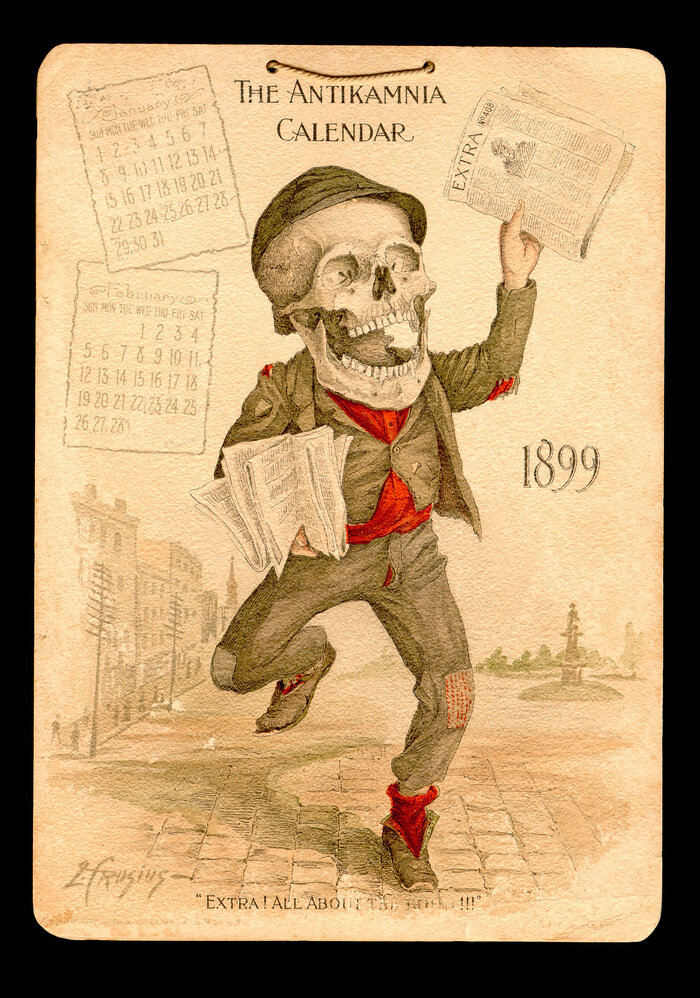 THE ANTIKAMNIA
CALENDAR
January
SUN MON TUE WED THU FRI SAT
1 2 3 4 5 6 7
8 9 10 11 12 13 14
15 16 17 18 19 20 21
22 23 24 25 26 27 28
29 30 31
EXTRA No 408
February
SUN MON TUE WED THU FRI SAT
1 2 3 4
5 6 7 8 9 10 11
12 13 14 15 16 17 18
19 20 21 22 23 24 25
26 27 28
1899
L Crusius
"EXTRA! ALL ABOUT THE !!!"